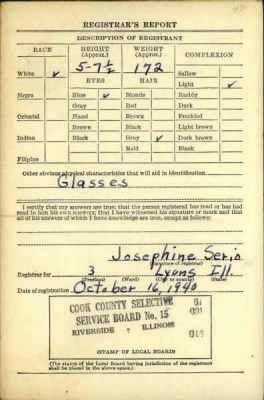 REGISTRAR'S REPORT
DESCRIPTION OF REGISTRANT
RACE
HEIGHT (Approx.)
WEIGHT (Approx.)
COMPLEXION
White ✓
5-7½
172
Sallow
EYES
HAIR
Light ✓
Negro
Blue ✓
Blonde
Ruddy
Gray
Red
Dark
Oriental
Hazel
Brown
Freckled
Brown
Black
Light brown
Indian
Black
Gray ✓
Dark brown
Bald
Black
Filipino
Other obvious physical characteristics that will aid in identification
Glasses
I certify that my answers are true; that the person registered has read or has had
read to him his own answers; that I have witnessed his signature or mark and that
all of his answers of which I have knowledge are true, except as follows:
Josephine Serio
(Signature of registrar)
Registrar for 3 Lyons Ill.
(Precinct) (Ward) (City or county) (State)
Date of registration October 16, 1940
COOK COUNTY SELECTIVE
SERVICE BOARD No. 15
RIVERSIDE ILLINOIS
61
031
015
STAMP OF LOCAL BOARDS
(The stamp of the Local Board having jurisdiction of the registrant
shall be placed in the above space.)